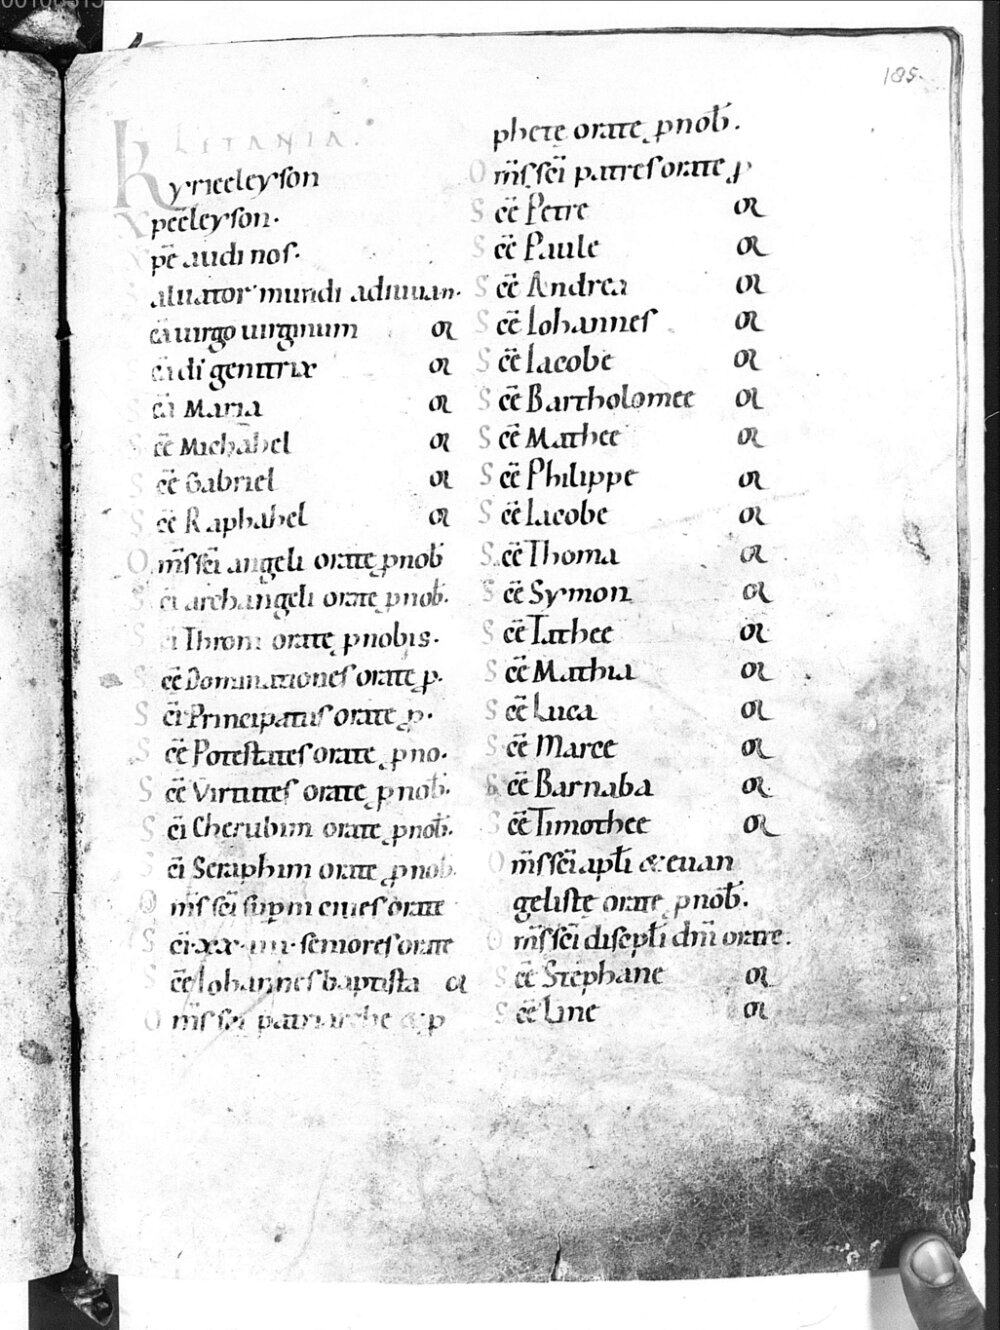 185
LETANIA.
Kyrieeleyson
Xpe͞eleyson.
Xpe͞ audi nos.
Saluator mundi adiuuan.
Sc͞a uirgo uirginum or
Sc͞a di͞ genitrix or
Sc͞a Maria or
Sc͞e Michahel or
Sc͞e Gabriel or
Sc͞e Raphahel or
Om͞s sc͞i angeli orate pnob͞
Sc͞i archangeli orate pnob͞.
Sc͞i Throni orate pnobis.
Sc͞e Dominationes orate p.
Sc͞i Principatus orate p.
Sc͞e Potestates orate pno.
Sc͞e Virtutes orate pnob͞.
Sc͞i Cherubim orate pnob͞.
Sc͞i Seraphim orate pnob.
Om͞s sc͞i sup͞ni ciues orate
Sc͞i xx·iiii· seniores orate
Sc͞e Iohannes baptista or
Om͞s sc͞i patriarche & p
phetę orate pnob͞.
Om͞s sc͞i patres orate p
Sc͞e Petre or
Sc͞e Paule or
Sc͞e Andrea or
Sc͞e Iohannes or
Sc͞e Iacobe or
Sc͞e Bartholomee or
Sc͞e Mathee or
Sc͞e Philippe or
Sc͞e Iacobe or
Sc͞e Thoma or
Sc͞e Symon or
Sc͞e Tathee or
Sc͞e Mathia or
Sc͞e Luca or
Sc͞e Marce or
Sc͞e Barnaba or
Sc͞e Timothee or
Om͞s sc͞i apl͞i & euan
gelistę orate pnob͞.
Om͞s sc͞i discipl͞i dm͞ orate.
Sc͞e Stephane or
Sc͞e Line or